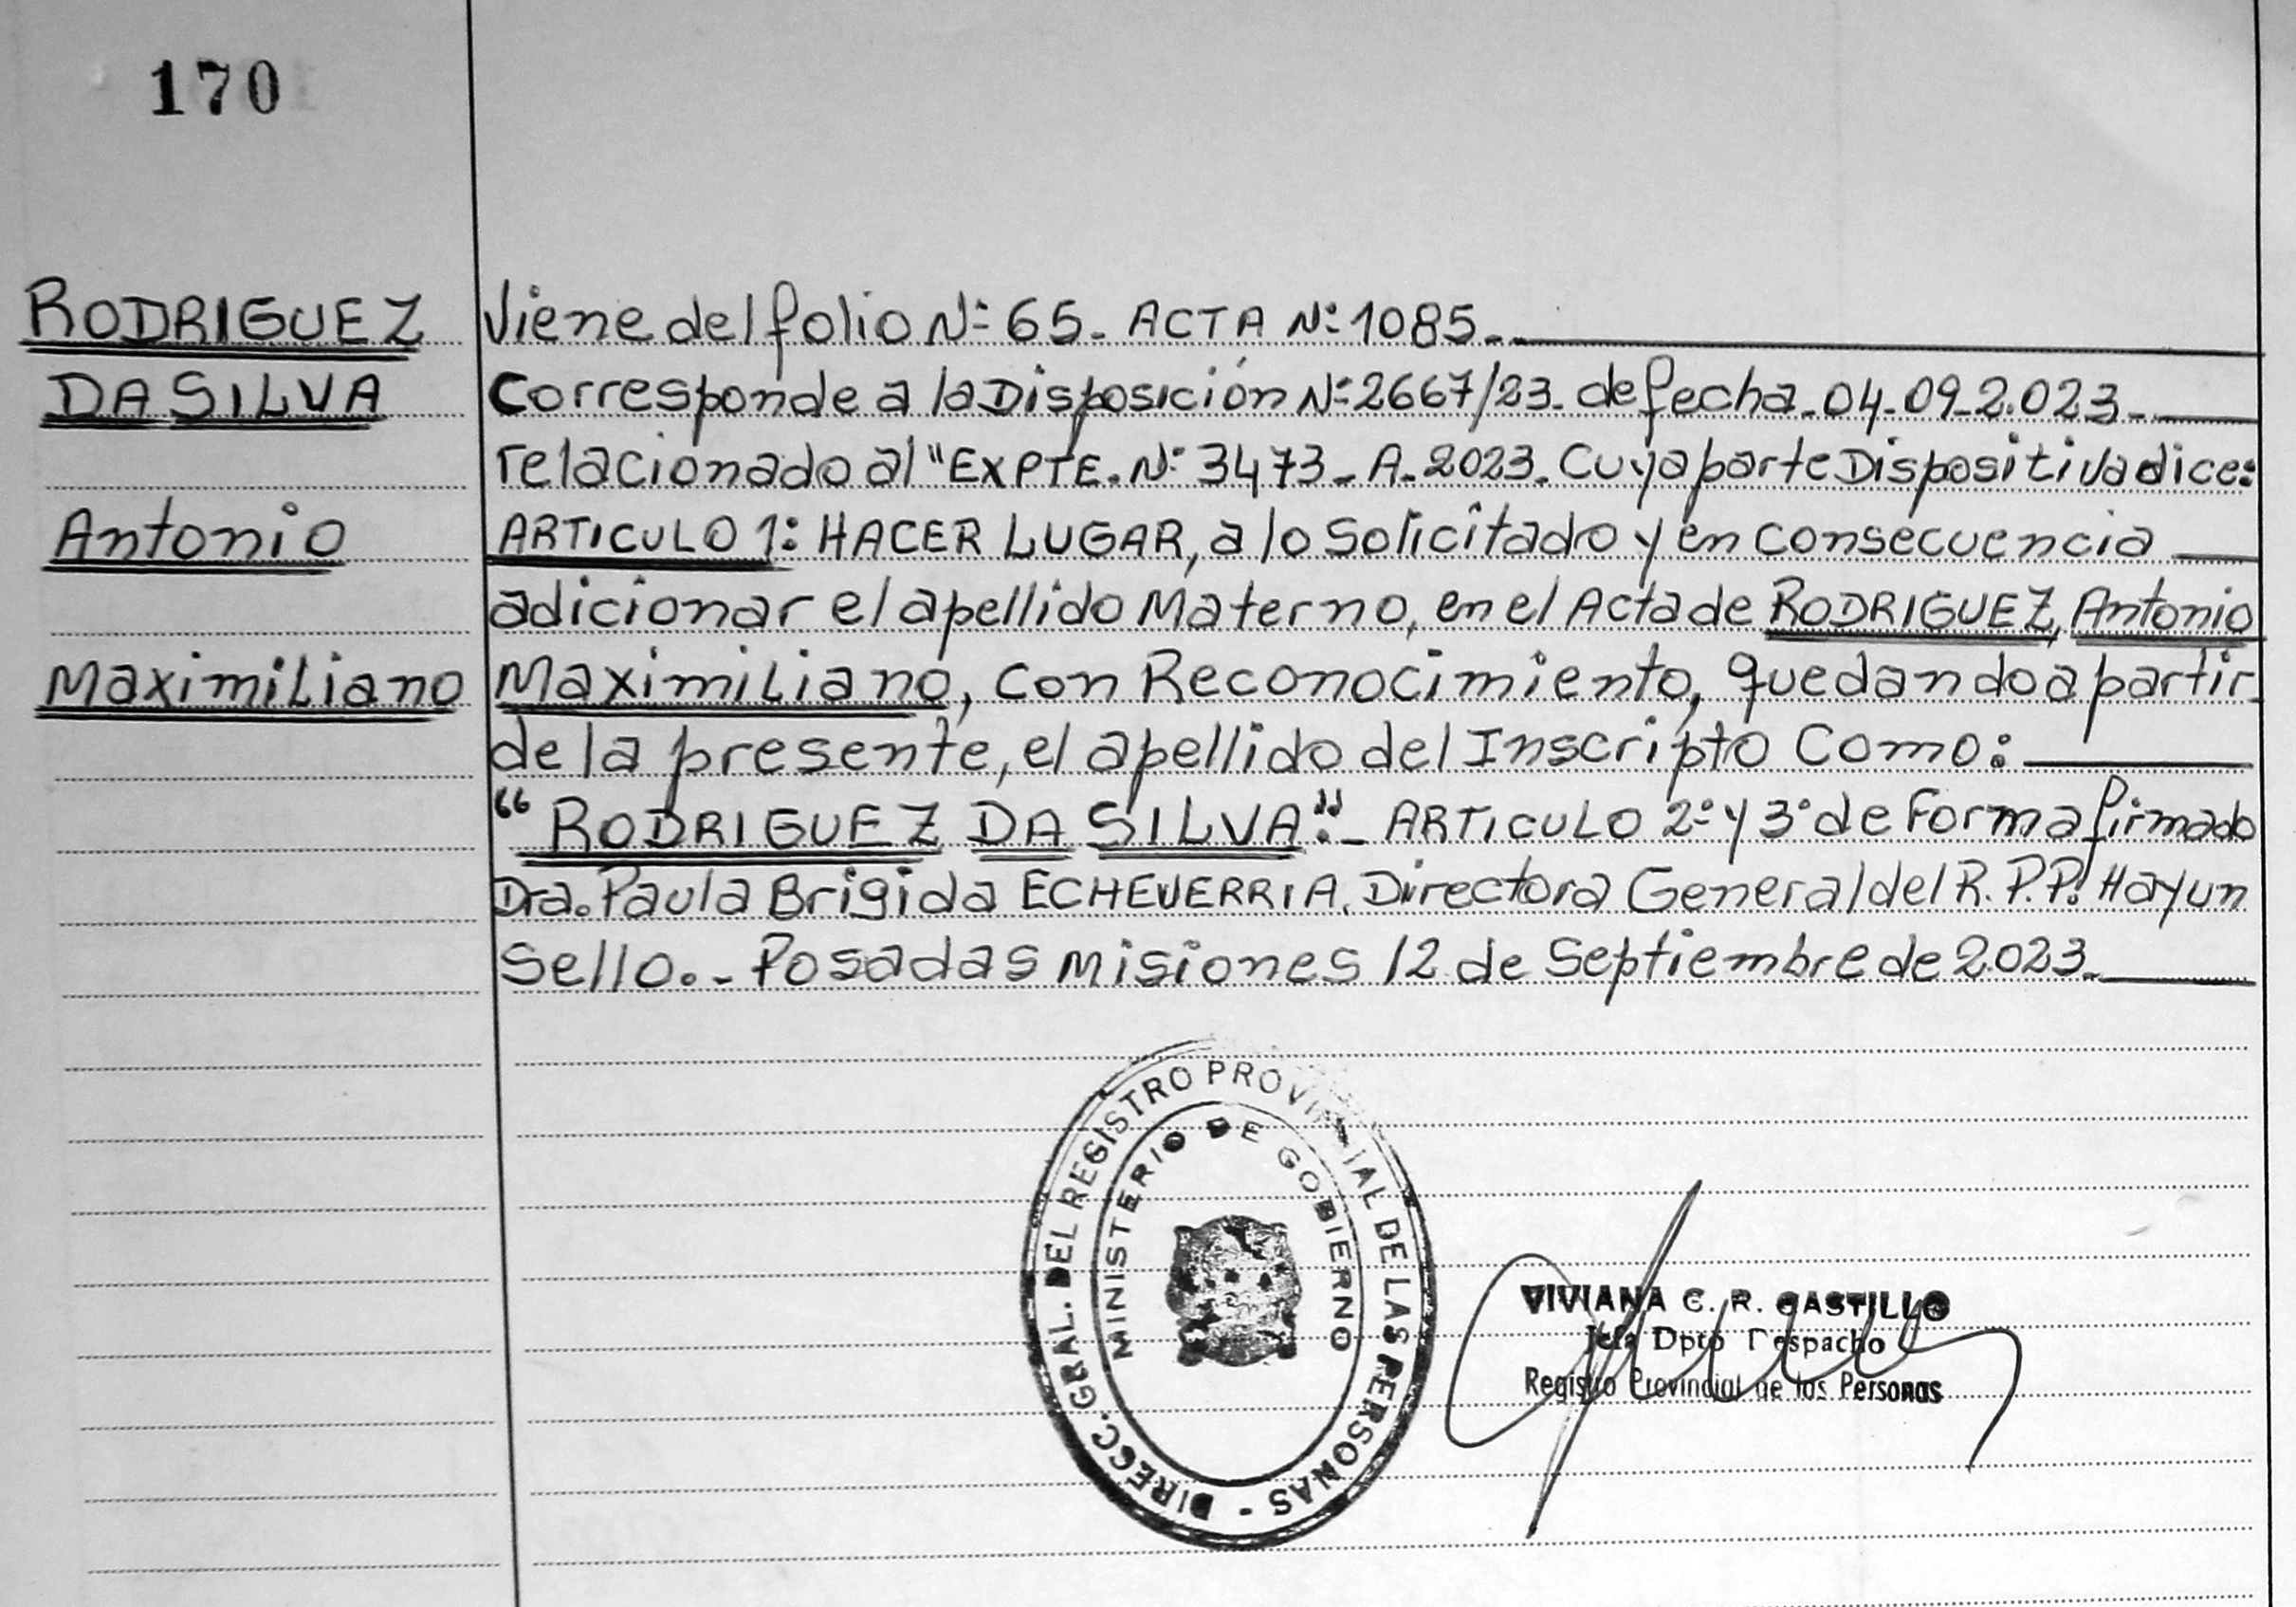 170
RODRIGUEZ
DA SILVA
Antonio
Maximiliano
Viene del folio Nº 65. ACTA Nº 1085.
Corresponde a la Disposición Nº 2667/23. de fecha. 04.09.2.023.
relacionado al "EXPTE. Nº 3473_ A. 2023. Cuya parte Dispositiva dice:
ARTICULO 1: HACER LUGAR, a lo Solicitado y en Consecuencia
adicionar el apellido Materno, en el Acta de RODRIGUEZ, Antonio
Maximiliano, Con Reconocimiento, quedando a partir
de la presente, el apellido del Inscripto Como:
"RODRIGUEZ DA SILVA". ARTICULO 2º y 3º de Forma firmado
Dra. Paula Brigida ECHEVERRIA. Directora General del R.P.P. Hay un
Sello. - Posadas Misiones 12 de Septiembre de 2.023.
DIRECC. GRAL. DEL REGISTRO PROVINCIAL DE LAS PERSONAS -
MINISTERIO DE GOBIERNO
VIVIANA C. R. CASTILLO
Jefa Dpto Despacho
Registro Provincial de las Personas